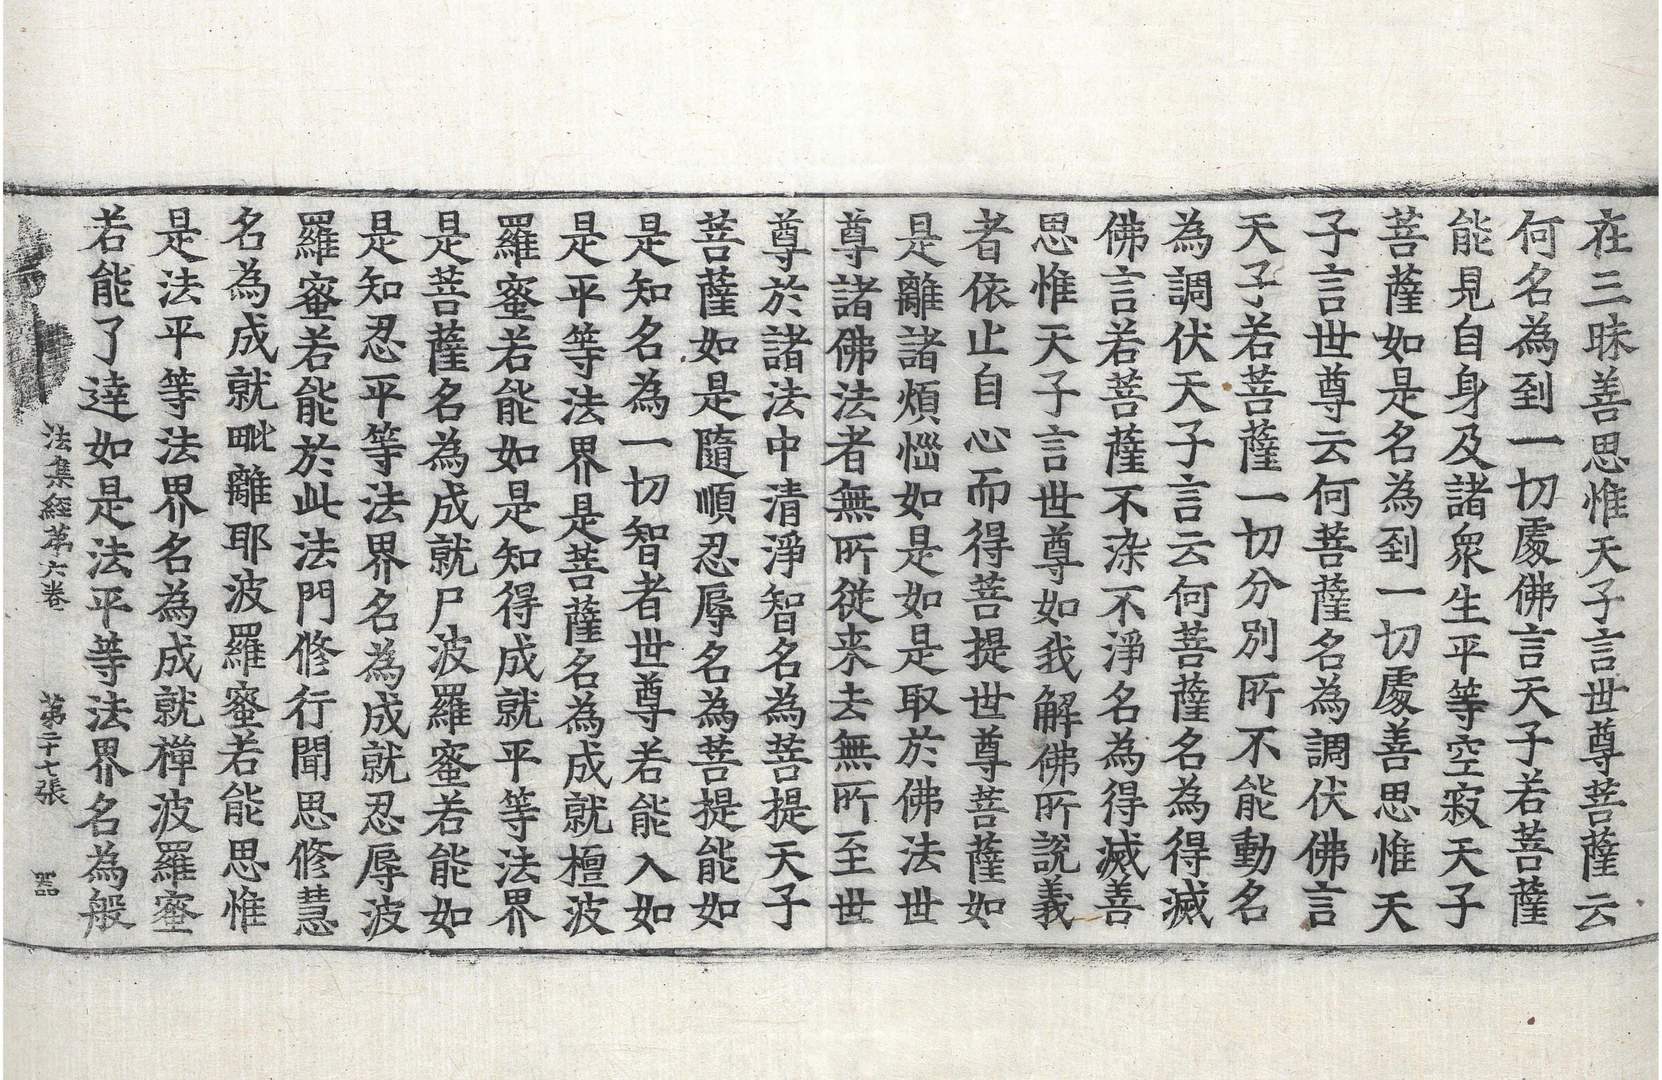 在三昧善思惟天子言世尊菩薩云
何名為到一切處佛言天子若菩薩
能見自身及諸衆生平等空寂天子
菩薩如是名為到一切處善思惟天
子言世尊云何菩薩名為調伏佛言
天子若菩薩一切分別所不能動名
為調伏天子言云何菩薩名為得滅
佛言若菩薩不染不淨名為得滅善
思惟天子言世尊如我解佛所說義
者依止自心而得菩提世尊菩薩如
是離諸煩惱如是如是取於佛法世
尊諸佛法者無所從来去無所至世
尊於諸法中清淨智名為菩提天子
菩薩如是隨順忍辱名為菩提能如
是知名為一切智者世尊若能入如
是平等法界是菩薩名為成就檀波
羅蜜若能如是知得成就平等法界
是菩薩名為成就尸波羅蜜若能如
是知忍平等法界名為成就忍辱波
羅蜜若能於此法門修行聞思修慧
名為成就毗離耶波羅蜜若能思惟
是法平等法界名為成就禪波羅蜜
若能了達如是法平等法界名為般
法集經第六卷 第二十七張 器